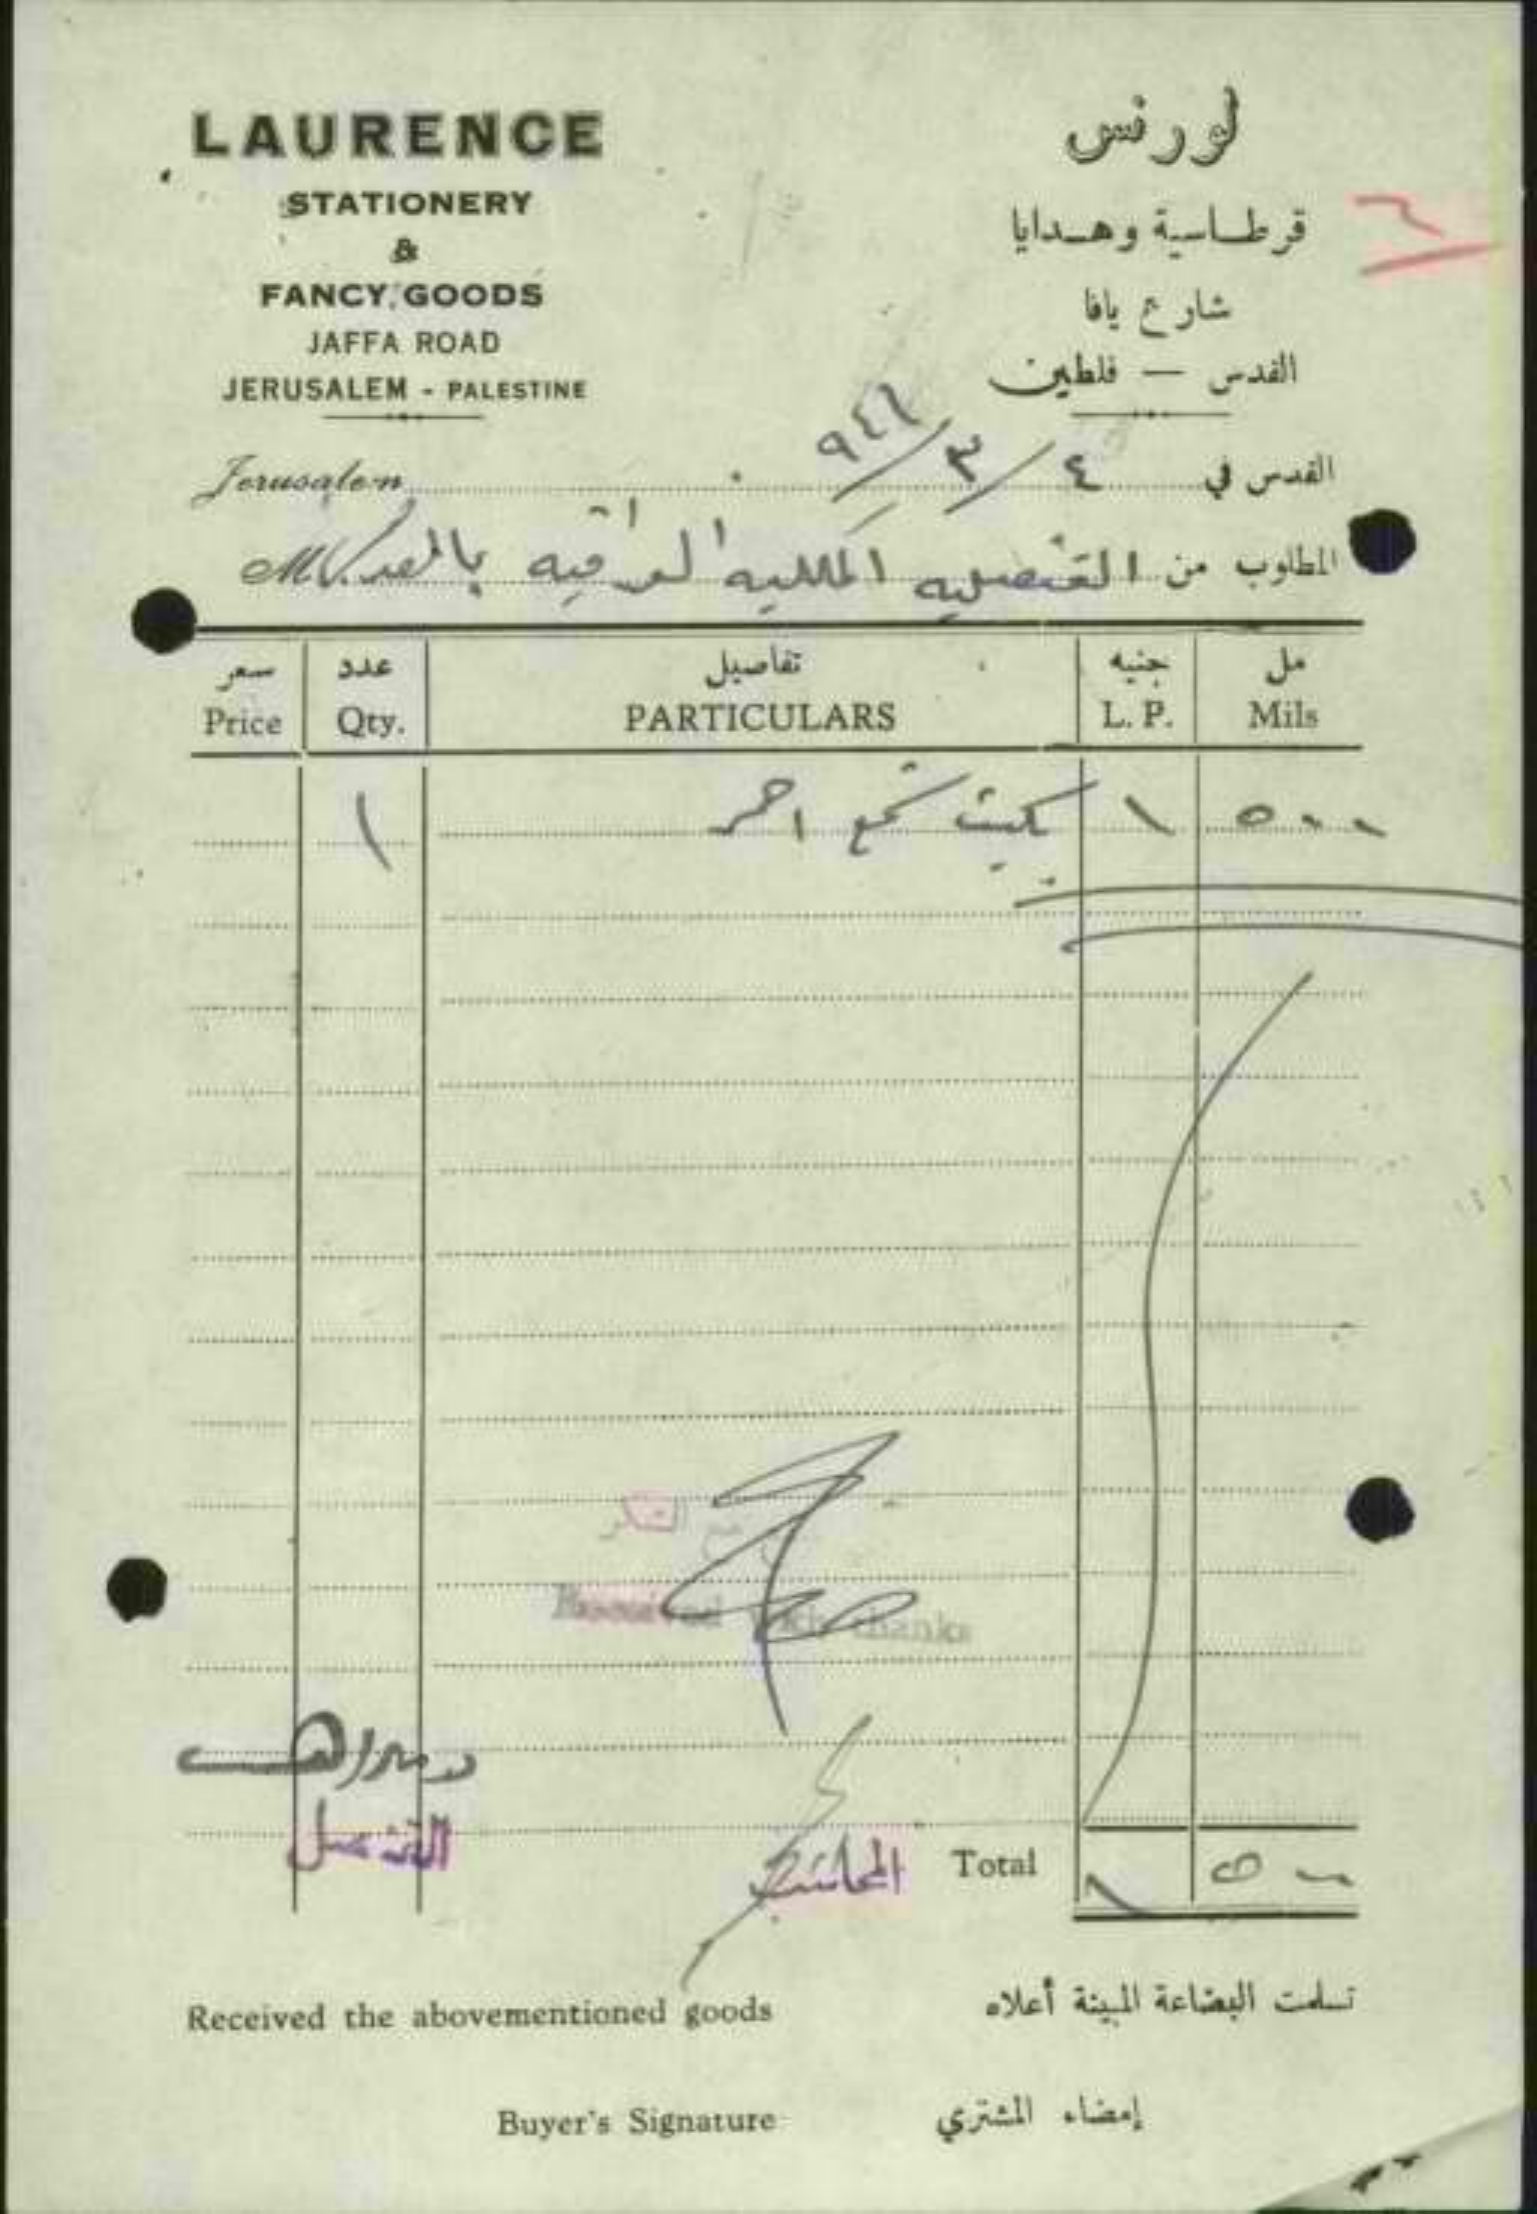 LAURENCE
STATIONERY
&
FANCY GOODS
JAFFA ROAD
JERUSALEM - PALESTINE
لورنس
قرطاسية وهدايا
شارع يافا
القدس — فلطين
Jerusalem القدس في ٤/٣/٩٤٦
المطلوب من القنصليه الملكيه العراقيه بالقدس
سعر عدد تفاصيل جنيه مل
Price Qty. PARTICULARS L. P. Mils
١ بكيت شمع احمر ١ ٥٠٠
مع الشكر
Received with thanks
القنصل
المحاسب
Total ١ ٥٠٠
Received the abovementioned goods تسلمت البضاعة المبينة أعلاه
Buyer's Signature إمضاء المشتري